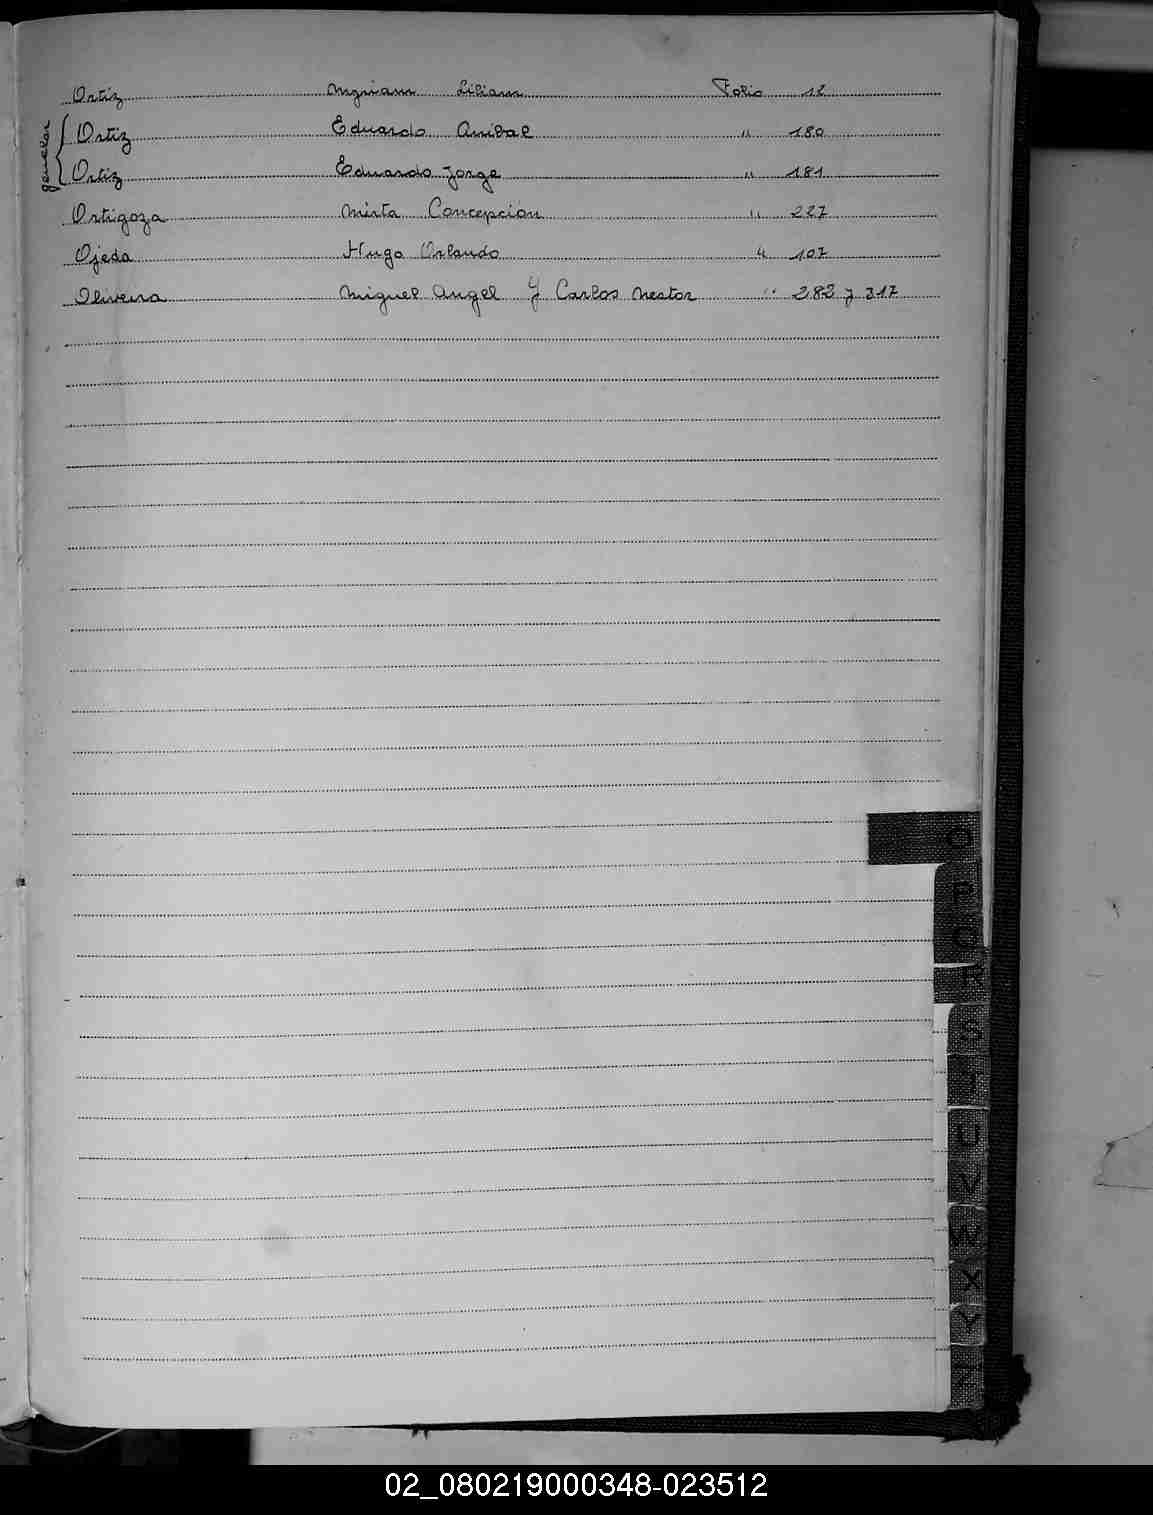 Ortiz Myriam Liliam Folio 12
gemelos
Ortiz Eduardo Anibal " 180
Ortiz Eduardo Jorge " 181
Ortigoza Mirta Concepción " 227
Ojeda Hugo Orlando " 107
Oliveira Miguel Angel y Carlos Nestor " 282 y 317
O
P
Q
R
S
T
U
V
W
X
Y
Z
02_080219000348-023512